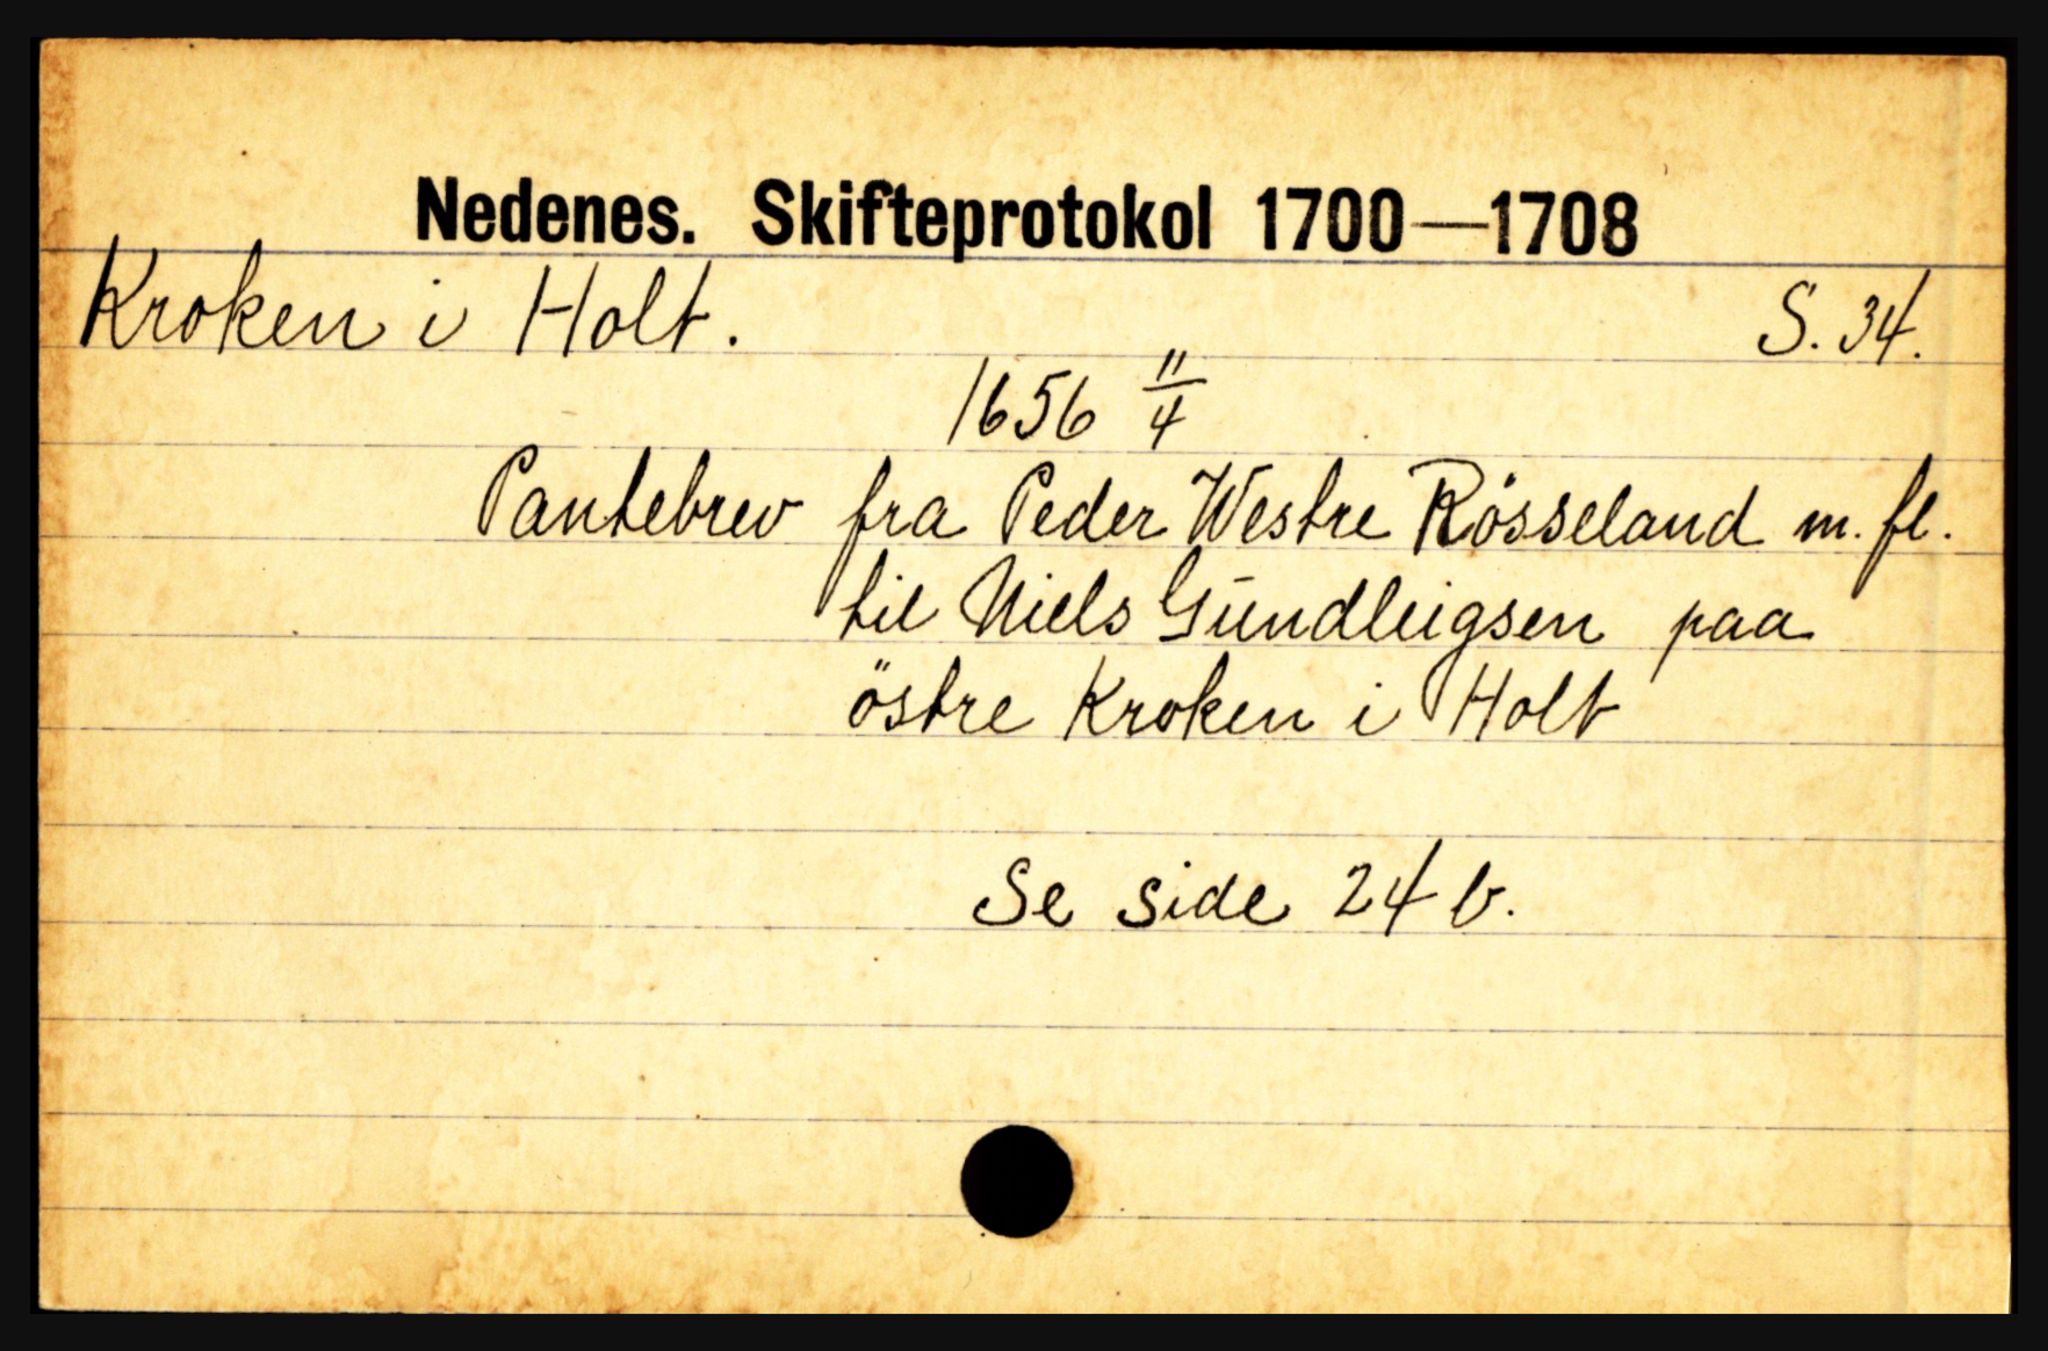 Nedenes. Skifteprotokol 1700—1708
Kroken i Holt. S. 34.
1656 11/4
Pantebrev fra Peder Westre Rösseland m. fl.
til Niels Gundleigsen paa
östre Kroken i Holt
Se side 24 b.